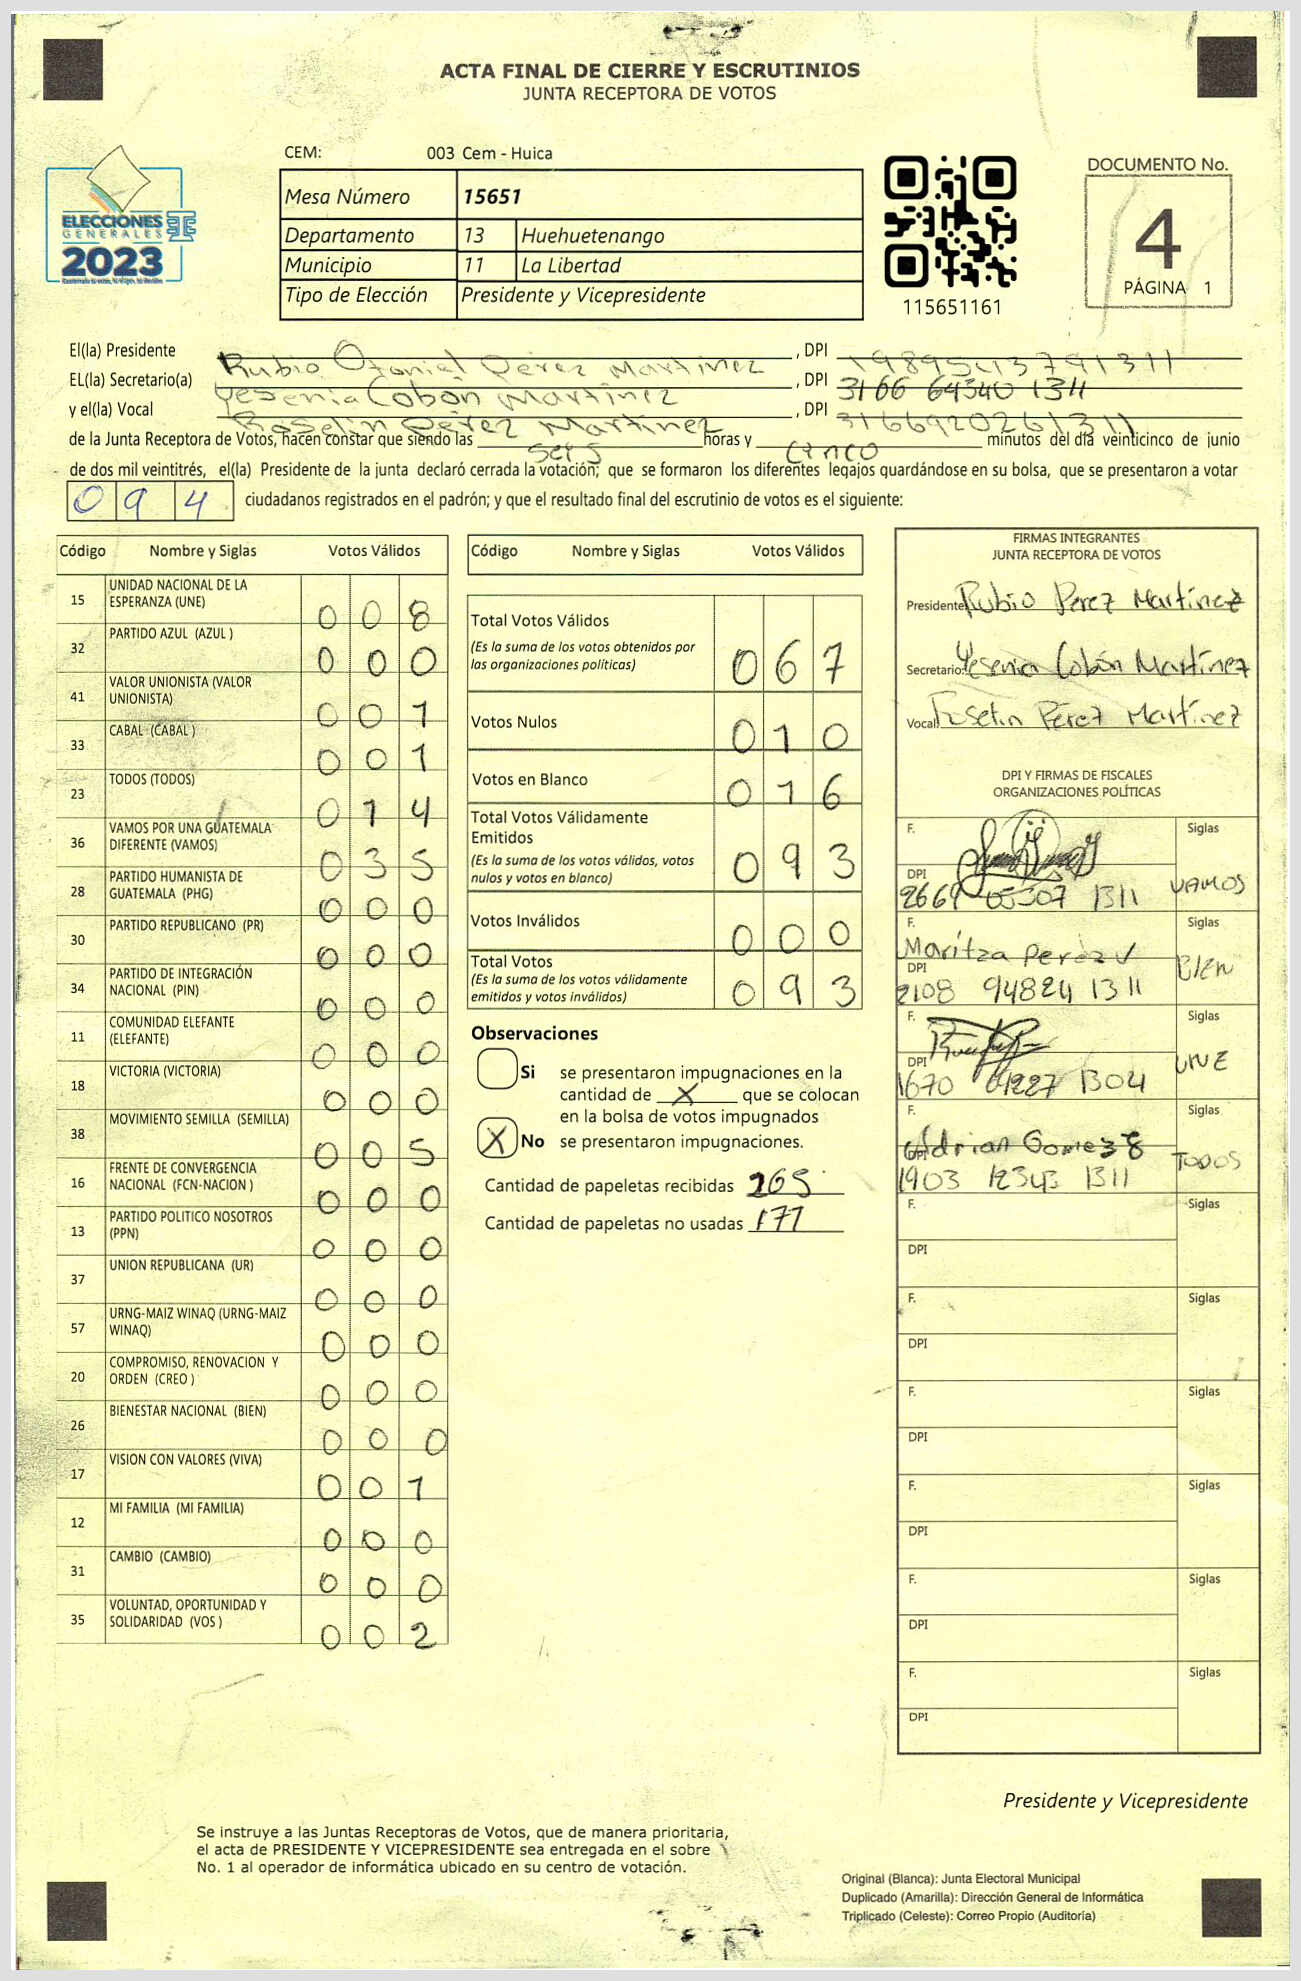 ACTA FINAL DE CIERRE Y ESCRUTINIOS
JUNTA RECEPTORA DE VOTOS
ELECCIONES
GENERALES
2023
CEM: 003 Cem - Huica
Mesa Número 15651
Departamento 13 Huehuetenango
Municipio 11 La Libertad
Tipo de Elección Presidente y Vicepresidente
115651161
DOCUMENTO No.
4
PÁGINA 1
El(la) Presidente Rubio Otoniel Pérez Martínez, DPI
EL(la) Secretario(a) Yesenia Cobón Martínez, DPI 3166 64340 1311
y el(la) Vocal Roselin Pérez Martínez, DPI 3166920261311
de la Junta Receptora de Votos, hacen constar que siendo las seis horas y cinco minutos del día veinticinco de junio
de dos mil veintitrés, el(la) Presidente de la junta declaró cerrada la votación; que se formaron los diferentes legajos quardándose en su bolsa, que se presentaron a votar
094 ciudadanos registrados en el padrón; y que el resultado final del escrutinio de votos es el siguiente:
Código Nombre y Siglas Votos Válidos
15 UNIDAD NACIONAL DE LA ESPERANZA (UNE) 008
32 PARTIDO AZUL (AZUL ) 000
41 VALOR UNIONISTA (VALOR UNIONISTA) 001
33 CABAL (CABAL ) 001
23 TODOS (TODOS) 014
36 VAMOS POR UNA GUATEMALA DIFERENTE (VAMOS) 035
28 PARTIDO HUMANISTA DE GUATEMALA (PHG) 000
30 PARTIDO REPUBLICANO (PR) 000
34 PARTIDO DE INTEGRACIÓN NACIONAL (PIN) 000
11 COMUNIDAD ELEFANTE (ELEFANTE) 000
18 VICTORIA (VICTORIA) 000
38 MOVIMIENTO SEMILLA (SEMILLA) 005
16 FRENTE DE CONVERGENCIA NACIONAL (FCN-NACION ) 000
13 PARTIDO POLITICO NOSOTROS (PPN) 000
37 UNION REPUBLICANA (UR) 000
57 URNG-MAIZ WINAQ (URNG-MAIZ WINAQ) 000
20 COMPROMISO, RENOVACION Y ORDEN (CREO ) 000
26 BIENESTAR NACIONAL (BIEN) 000
17 VISION CON VALORES (VIVA) 001
12 MI FAMILIA (MI FAMILIA) 000
31 CAMBIO (CAMBIO) 000
35 VOLUNTAD, OPORTUNIDAD Y SOLIDARIDAD (VOS ) 002
Código Nombre y Siglas Votos Válidos
Total Votos Válidos 067
(Es la suma de los votos obtenidos por
las organizaciones políticas)
Votos Nulos 010
Votos en Blanco 016
Total Votos Válidamente
Emitidos 093
(Es la suma de los votos válidos, votos
nulos y votos en blanco)
Votos Inválidos 000
Total Votos 093
(Es la suma de los votos válidamente
emitidos y votos inválidos)
Observaciones
Si se presentaron impugnaciones en la
cantidad de X que se colocan
en la bolsa de votos impugnados
X No se presentaron impugnaciones.
Cantidad de papeletas recibidas 265
Cantidad de papeletas no usadas 171
FIRMAS INTEGRANTES
JUNTA RECEPTORA DE VOTOS
Presidente: Rubio Perez Martínez
Secretario: Yesenia Cobón Martínez
Vocal: Roselin Pérez Martínez
DPI Y FIRMAS DE FISCALES
ORGANIZACIONES POLÍTICAS
F. Siglas
DPI 1311 VAMOS
F. Siglas
Maritza Perez V
DPI 2108 94824 1311 BIEN
F. Siglas
DPI 1670 1304 UNE
F. Siglas
Adrian Gomez
DPI 1903 12343 1311 TODOS
F. Siglas
DPI
F. Siglas
DPI
F. Siglas
DPI
F. Siglas
DPI
F. Siglas
DPI
F. Siglas
DPI
Presidente y Vicepresidente
Se instruye a las Juntas Receptoras de Votos, que de manera prioritaria,
el acta de PRESIDENTE Y VICEPRESIDENTE sea entregada en el sobre
No. 1 al operador de informática ubicado en su centro de votación.
Original (Blanca): Junta Electoral Municipal
Duplicado (Amarilla): Dirección General de Informática
Triplicado (Celeste): Correo Propio (Auditoría)